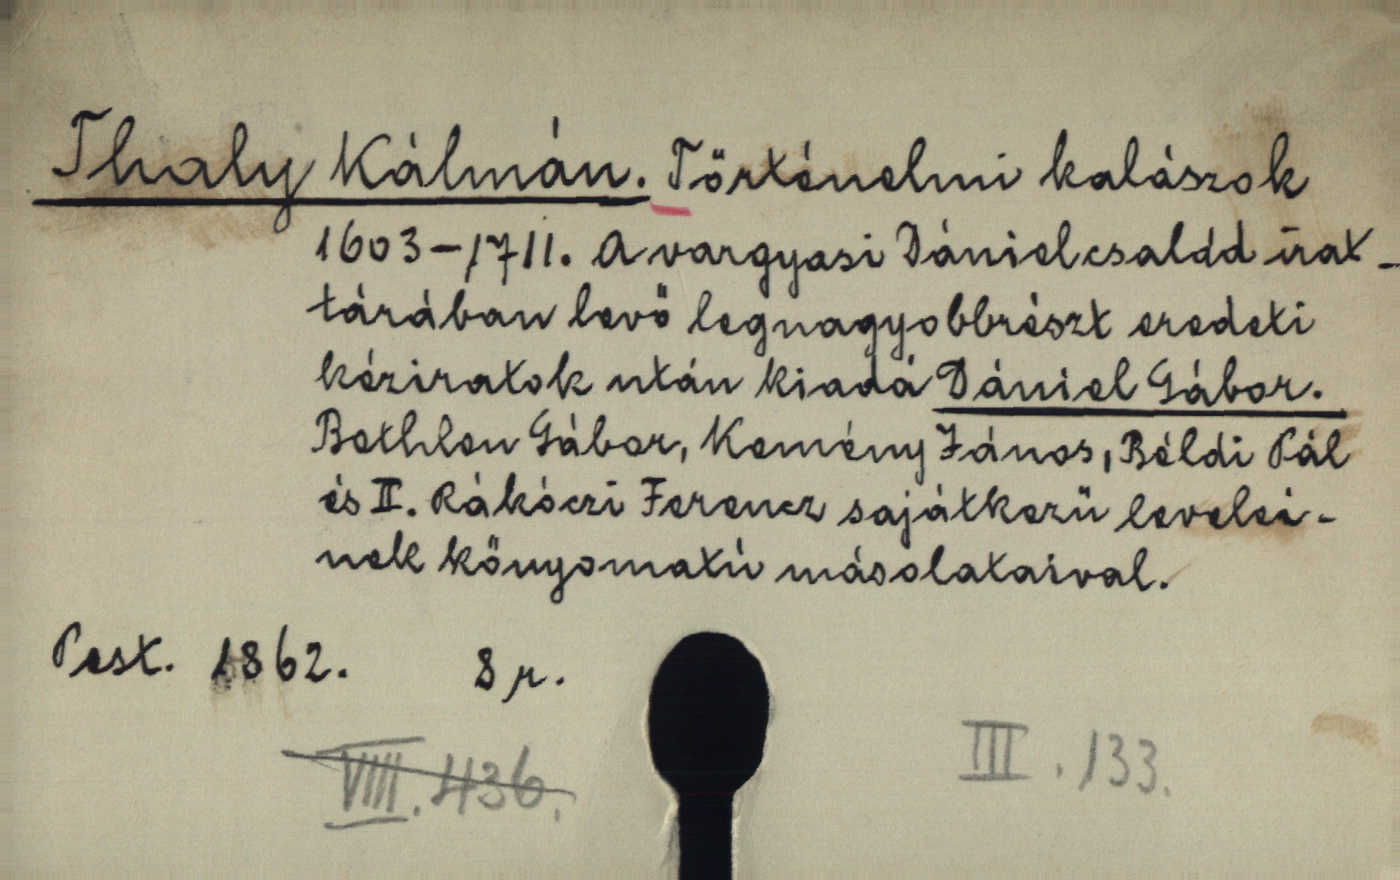 Thaly Kálmán. Történelmi kalászok
1603–1711. A vargyasi Dániel család irat-
tárában levő legnagyobbrészt eredeti
kéziratok után kiadá Dániel Gábor.
Bethlen Gábor, Kemény János, Béldi Pál
és II. Rákóczi Ferencz sajátkezü levelei-
nek kőnyomatú másolataival.
Pest. 1862. 8 r.
VIIII. 436.
III. 133.